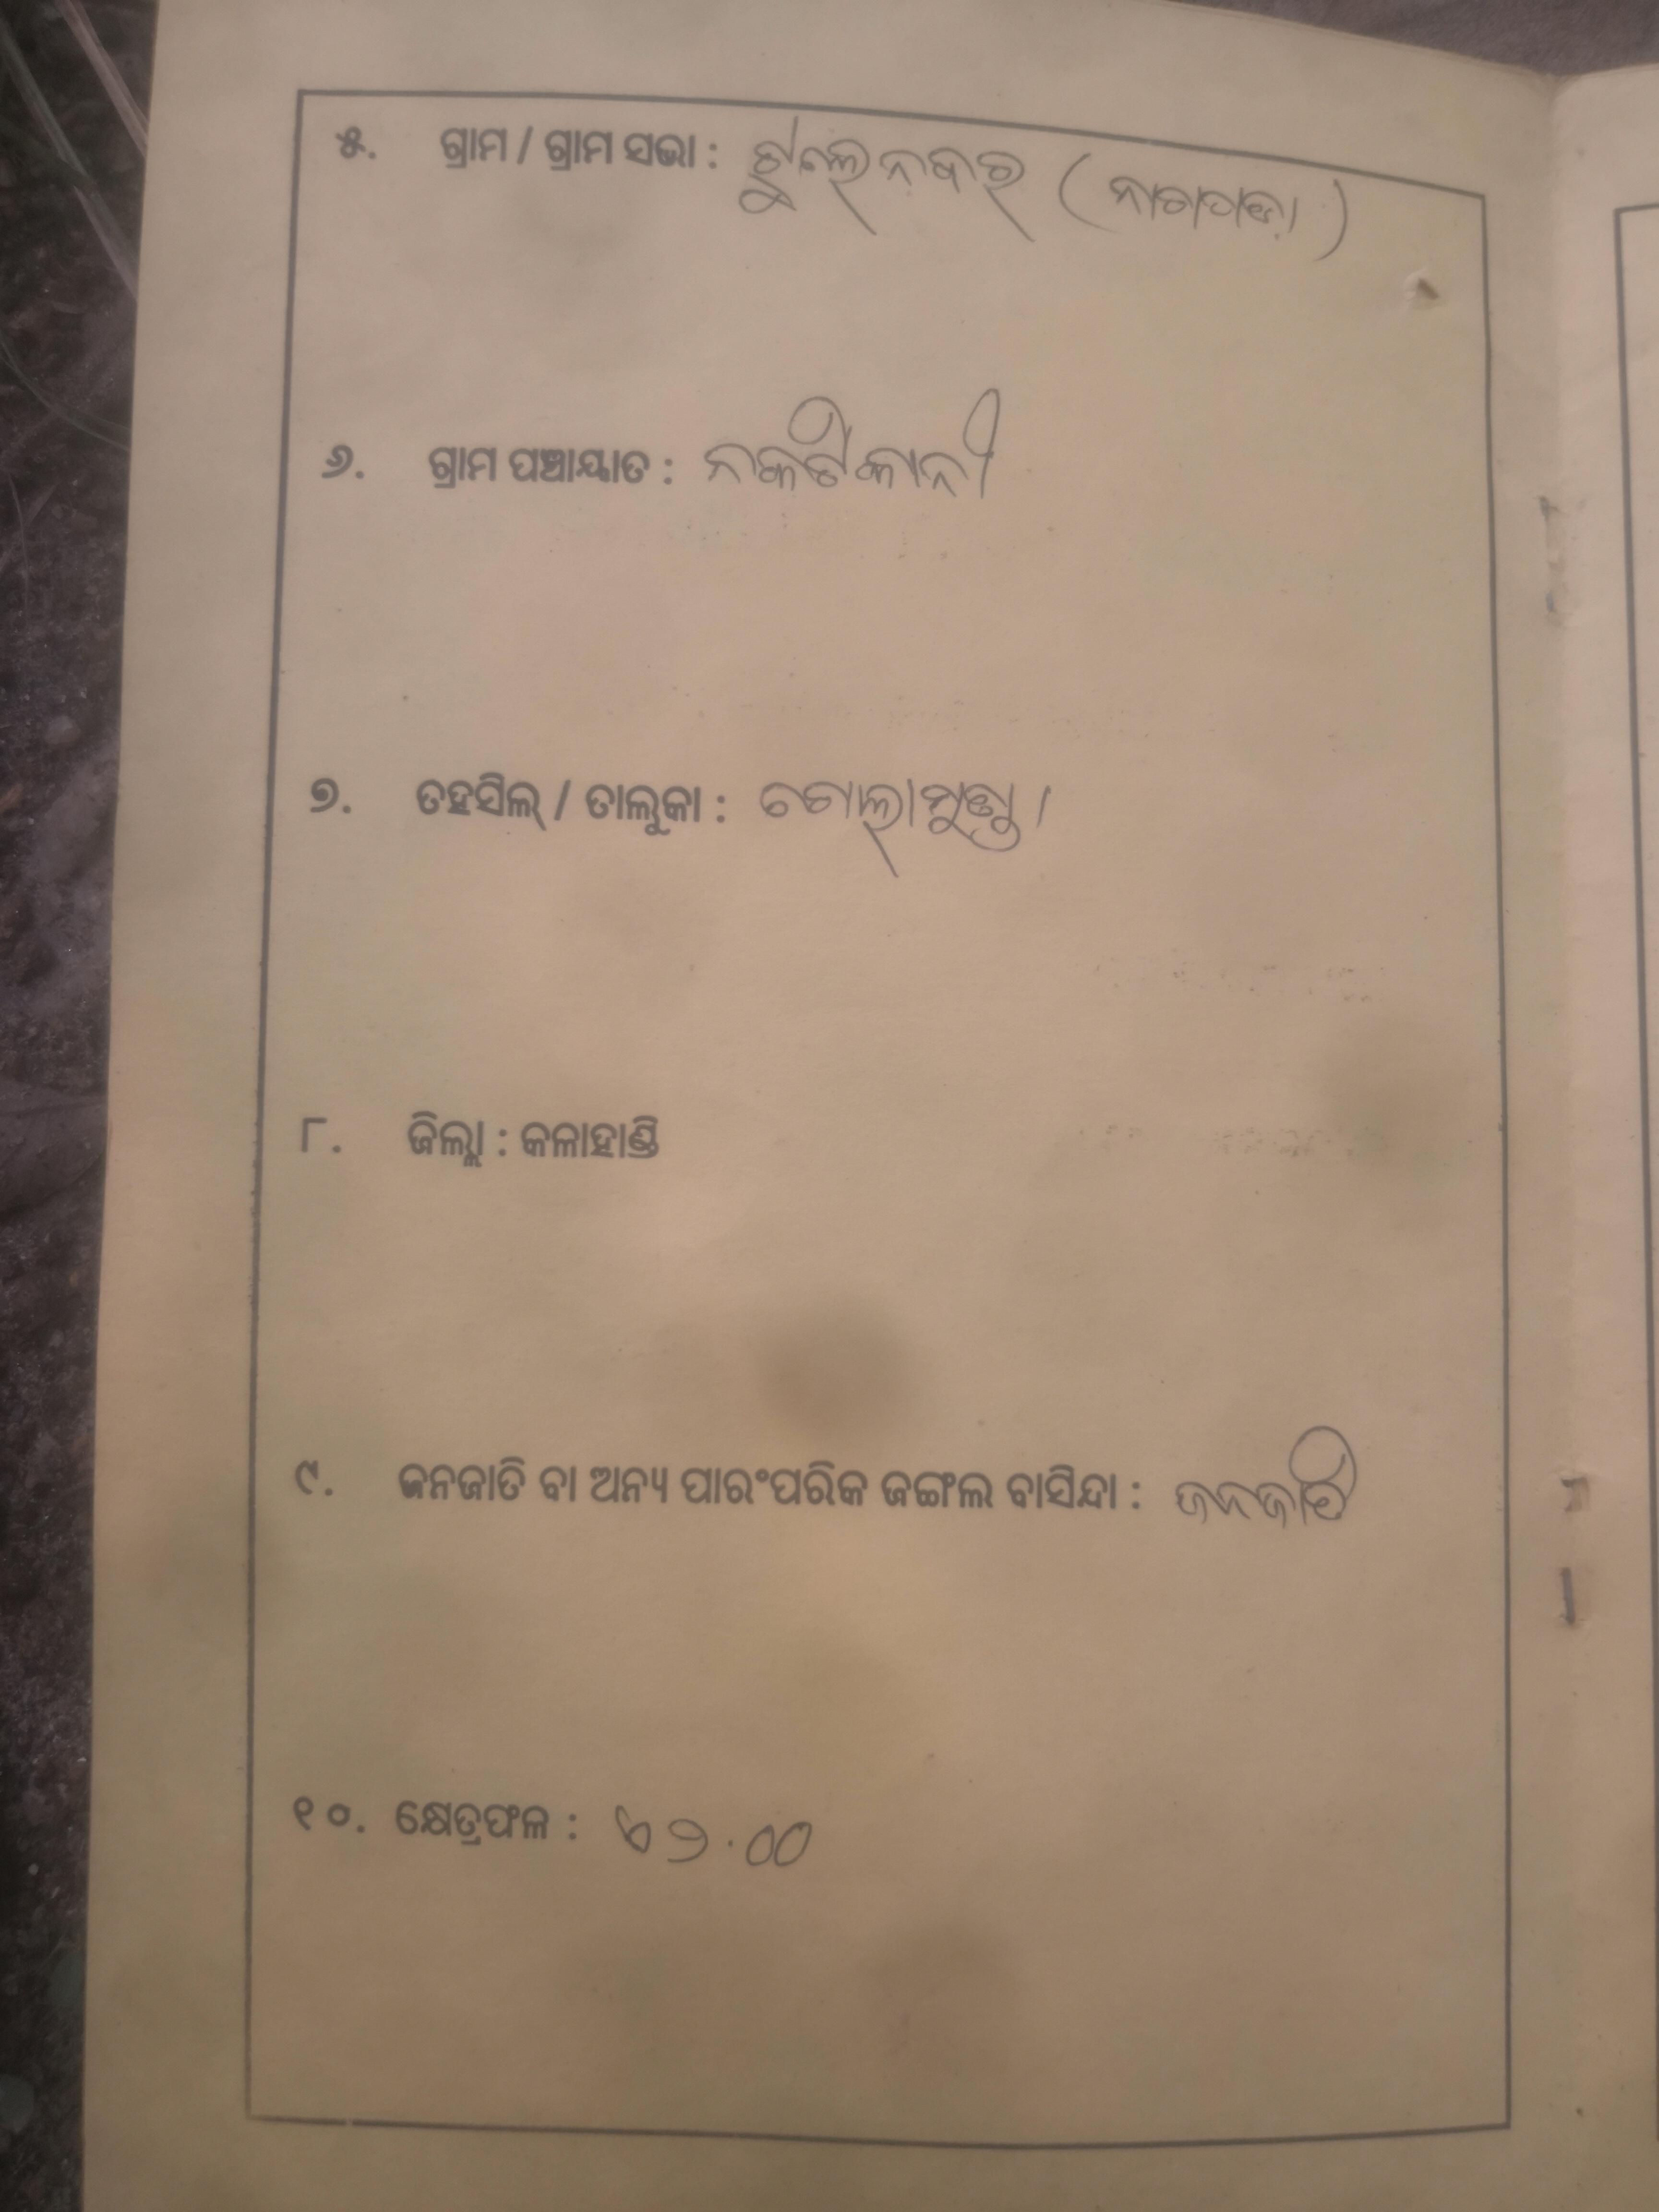 ୫. ଗ୍ରାମ / ଗ୍ରାମ ସଭା :
୬. ଗ୍ରାମ ପଞ୍ଚାୟାତ : ନକଟିକାନୀ
୭. ତହସିଲ୍ / ତାଲୁକା : ଗୋଲାମୁଣ୍ଡା
୮. ଜିଲ୍ଲା : କଳାହାଣ୍ଡି
୯. ଜନଜାତି ବା ଅନ୍ୟ ପାରଂପରିକ ଜଙ୍ଗଲ ବାସିନ୍ଦା : ଜନଜାତି
୧୦. କ୍ଷେତ୍ରଫଳ : ଏ ୨.୦୦